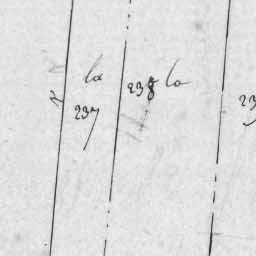 la
237
238 la
23